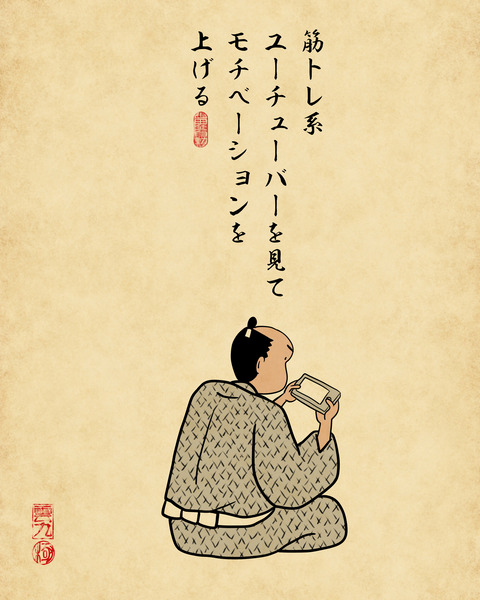 筋トレ系
ユーチューバーを見て
モチベーションを
上げる